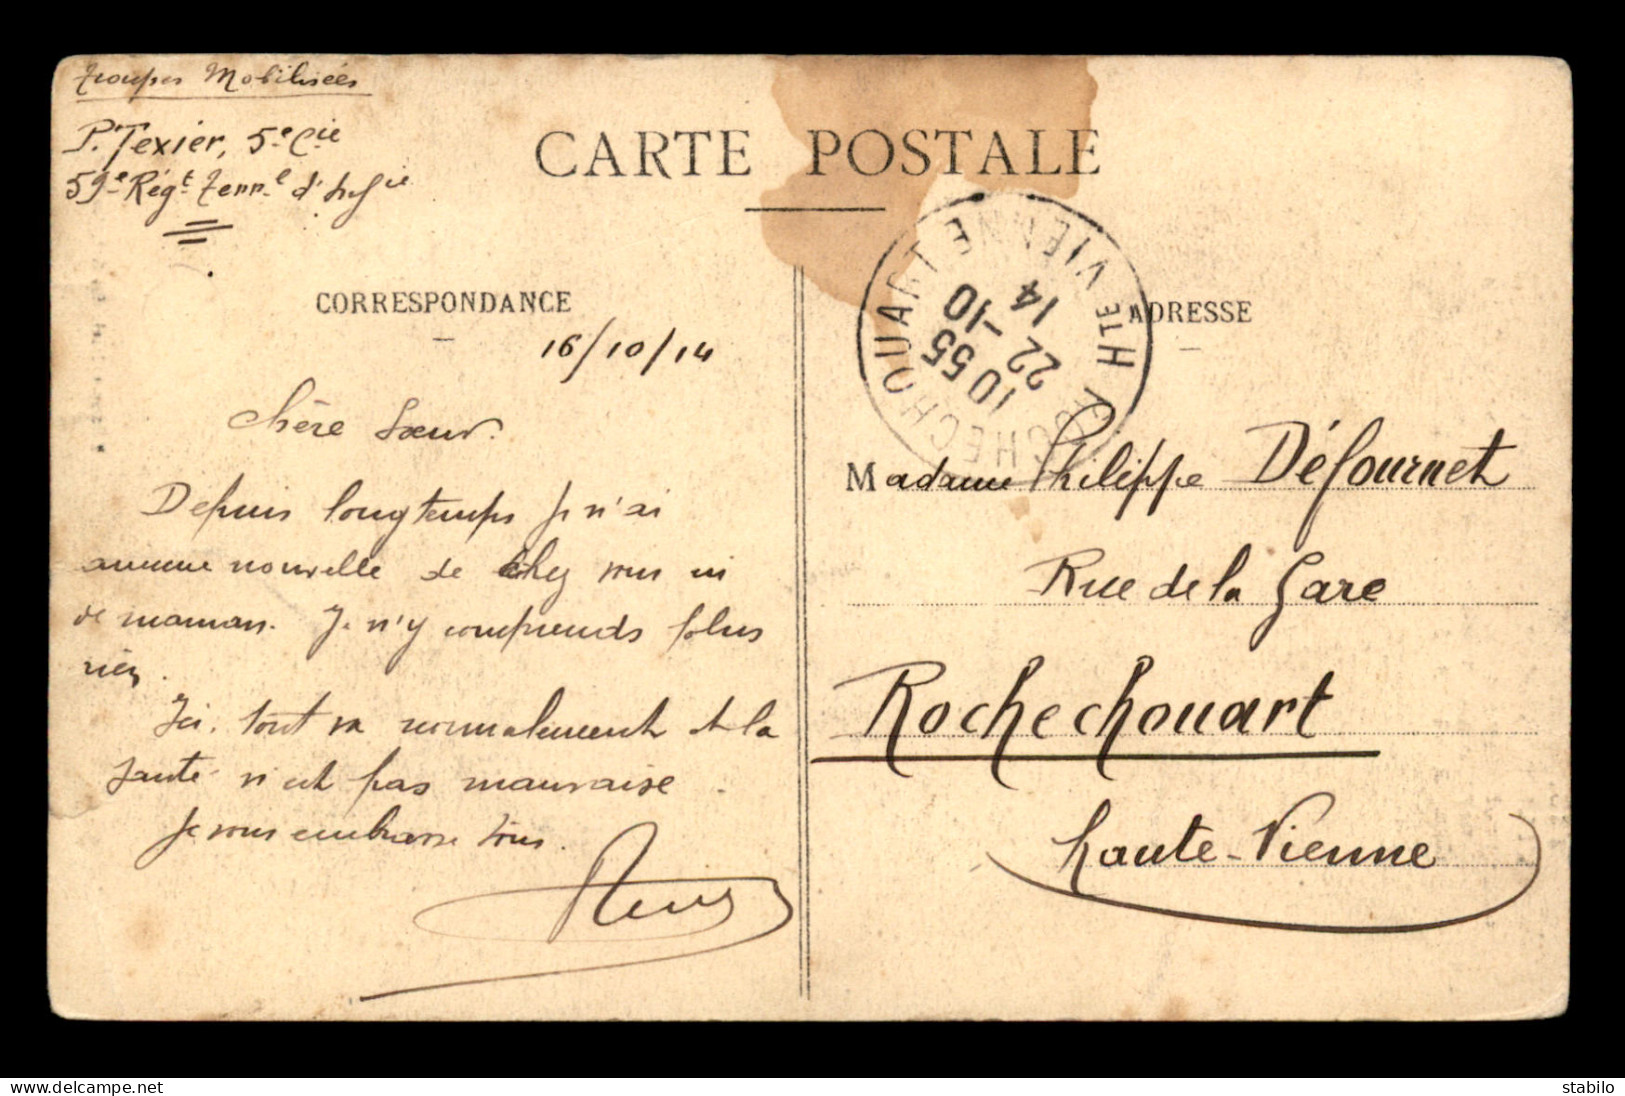 Troupes Mobilisées
P. Texier, 5e Cie
59e Régt Terr.l d'Infie
CARTE POSTALE
CORRESPONDANCE
ADRESSE
16/10/14
ROCHECHOUART HTE VIENNE
10 55
22 -10
14
Chère Sœur.
Depuis longtemps je n'ai
aucune nouvelle de chez vous ni
de maman. Je n'y comprends plus
rien.
Ici, tout va normalement et la
santé n'est pas mauvaise.
Je vous embrasse tous.
Madame Philippe Défournet
Rue de la Gare
Rochechouart
Haute-Vienne
www.delcampe.net
stabilo